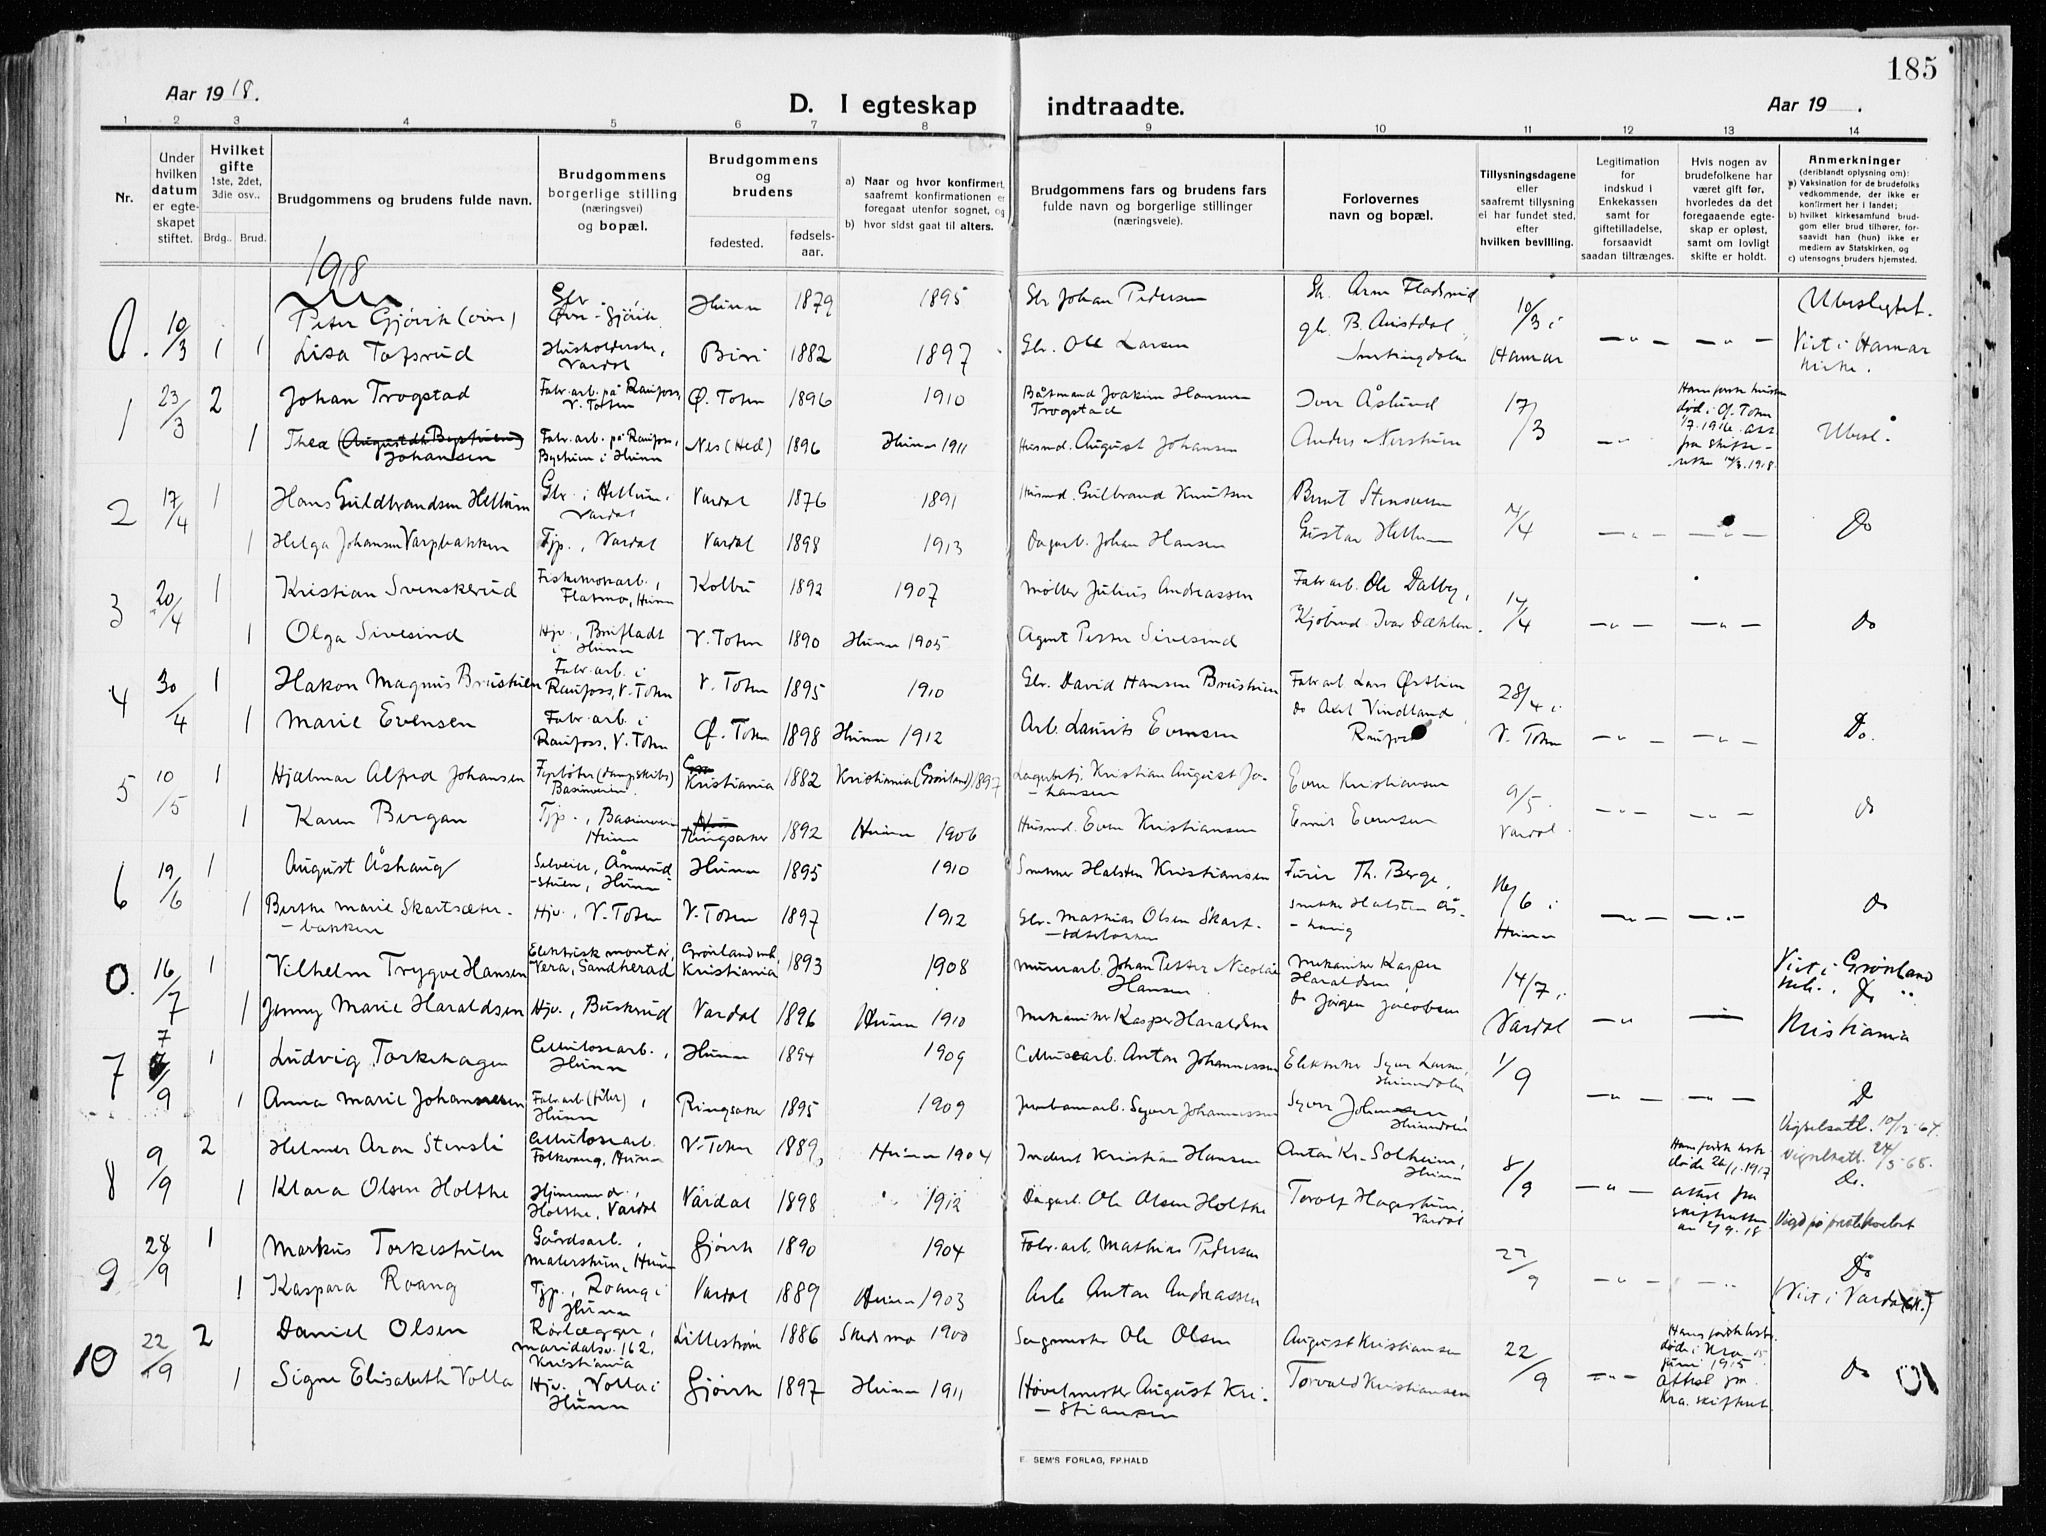 185
Aar 1918.
D. I egteskap indtraadte.
Aar 19 .
1 2 3 4 5 6 7 8 9 10 11 12 13 14
Nr.
Under
hvilken
datum
er egte-
skapet
stiftet.
Hvilket
gifte
1ste, 2det,
3die osv..
Brdg..
Brud.
Brudgommens og brudens fulde navn.
Brudgommens
borgerlige stilling
(næringsvei)
og bopæl.
Brudgommens
og
brudens
fødested.
fødsels-
aar.
a) Naar og hvor konfirmert,
saafremt konfirmationen er
foregaat utenfor sognet, og
b) hvor sidst gaat til alters.
Brudgommens fars og brudens fars
fulde navn og borgerlige stillinger
(næringsveie).
Forlovernes
navn og bopæl.
Tillysningsdagene
eller
saafremt tillysning
ei har fundet sted,
efter
hvilken bevilling.
Legitimation
for
indskud i
Enkekassen
samt for
giftetilladelse,
forsaavidt
saadan tiltrænges.
Hvis nogen av
brudefolkene har
været gift før,
hvorledes da det
foregaaende egte-
skap er opløst,
samt om lovligt
skifte er holdt.
Anmerkninger
(deriblandt oplysning om):
a) Vaksination for de brudefolks
vedkommende, der ikke er
konfirmert her i landet;
b) hvilket kirkesamfund brud-
gom eller brud tilhører, for-
saavidt han (hun) ikke er
medlem av Statskirken, og
c) utensogns bruders hjemsted.
1918
0. 10/3 1 Peter Gjövik (øvre) Gbr. Øvre-Gjövik Hunn 1879 1895 Gbr Johan Pedersen 10/3 i Ubeslegtet.
1 Lisa Tofsrud Husholderske, Vardal Biri 1882 1897 Gbr. Ole Larsen Hamar Viet i Hamar kirke.
1 23/3 2 Johan Trogstad Fabr. arb. på Raufoss, V. Toten Ø. Toten 1896 1910 Båtmand Joakim Hansen Trogstad Iver Åslund 17/3
1 Thea Johansen Fabr. arb. på Raufoss, Bystuen i Hunn Nes (Hed) 1896 Hunn 1911 Husmd. August Johansen Anders Nerstuen Ubesl.
2 17/4 1 Hans Guldbrandsen Hellum Gbr. i Hellum, Vardal Vardal 1876 1891 Husmd. Gulbrand Knutsen Bernt Stensveen
1 Helga Johansen Varpbakken Tjp., Vardal Vardal 1898 1913 Dagarb. Johan Hansen Gustav Hellum Do
3 20/4 1 Kristian Svenskerud Flatmo, Hunn Kolbu 1892 1907 Møller Julius Andreassen Fabr arb. Ole Dalby, 14/4
1 Olga Sivesind Hjv., Brufladt i Hunn V. Toten 1890 Hunn 1905 Agent Petter Sivesind Kjøbmd Ivar Dæhlen. Do
4 30/4 1 Hakon Magnus Brustuen Fabr. arb. i Raufoss, V. Toten V. Toten 1895 1910 Gbr. David Hansen Brustuen Fabr arb. Lars Østlien 28/4 i
1 Marie Evensen Fabr. arb. i Raufoss, V. Toten Ø. Toten 1898 Hunn 1912 Arb. Laurits Evensen do Axel Vindland, Raufoss V. Toten Do.
5 10/5 1 Hjalmar Alfred Johansen Fyrbøter (dampskibs) Kristiania 1882 Kristiania (Grønland) 1897 Lagerbetj. Kristian August Johansen Even Kristiansen 9/5
1 Karen Bergan Tjp., Hunn Ringsaker 1892 Hunn 1906 Husmd. Even Kristiansen Emil Evensen Vardal. do
6 19/6 1 August Åshaug Hunn 1895 1910 Snekker Halsten Kristiansen Furir Th. Berge, 16/6 i
1 Berthe Marie Skartsæter-bakken Hjv., V. Toten V. Toten 1897 1912 Gbr. Mathias Olsen Skart- Snekker Halsten Ås-haug Hunn Do
0. 16/7 1 Vilhelm Trygve Hansen Elektrisk montör, Vera, Sandherad Grønland mh. Kristiania 1893 1908 Murerarb. Johan Petter Nicolai Hansen Mekaniker Kasper Haraldsen, 14/7 i Viet i Grønland
1 Jenny Marie Haraldsen Hjv., Buskerud Vardal 1896 Hunn 1910 Mekaniker Kasper Haraldsen do Jørgen Jacobsen Vardal Kristiania
7 7/9 1 Ludvig Torkehagen Cellulosearb., Hunn Hunn 1894 1909 Cellulosearb. Anton Johannessen Elektriker Syver Larsen, Hunndalen 1/9
1 Anna Marie Johannessen Fabrarb (filer), Hunn Ringsaker 1895 1909 Jernbanearb. Syver Johannessen Syver Johansen, Hunndalen D
8 9/9 2 Helmer Aron Stensli Cellulosearb. Folkvang, Hunn V. Toten 1889 Hunn 1904 Inderst Kristian Hansen Anton Kr. Solheim, Hunn 8/9 Vigselsatt. 10/2-64. Vigselsatt. 24/5-68.
1 Klara Olsen Holthe Hjemmedr., Holthe, Vardal Vardal 1898 1912 Dagarb. Ole Olsen Holthe Torolf Hagestuen, Vardal Do. Viet på prestekontoret
9 28/9 1 Markus Torkestuen Gårdsarb., Materstuen, Hunn Gjövik 1890 1904 Fabr. arb. Mathias Pedersen 22/9 Do
1 Kaspara Roang Tjp., Roang i Hunn Vardal 1889 Hunn 1903 Arb Anton Andreassen (Viet i Vardal k.)
10 22/9 2 Daniel Olsen Rörlægger, Maridalsv. 162, Kristiania Lillestrøm 1886 Skedsmo 1900 Sagmester Ole Olsen August Kristiansen 22/9
1 Signe Elisabeth Volla Hjv., Volla i Hunn Gjövik 1897 Hunn 1911 Høvelmester August Kri-stiansen Torvald Kristiansen Do
E. SEM'S FORLAG, FR.HALD